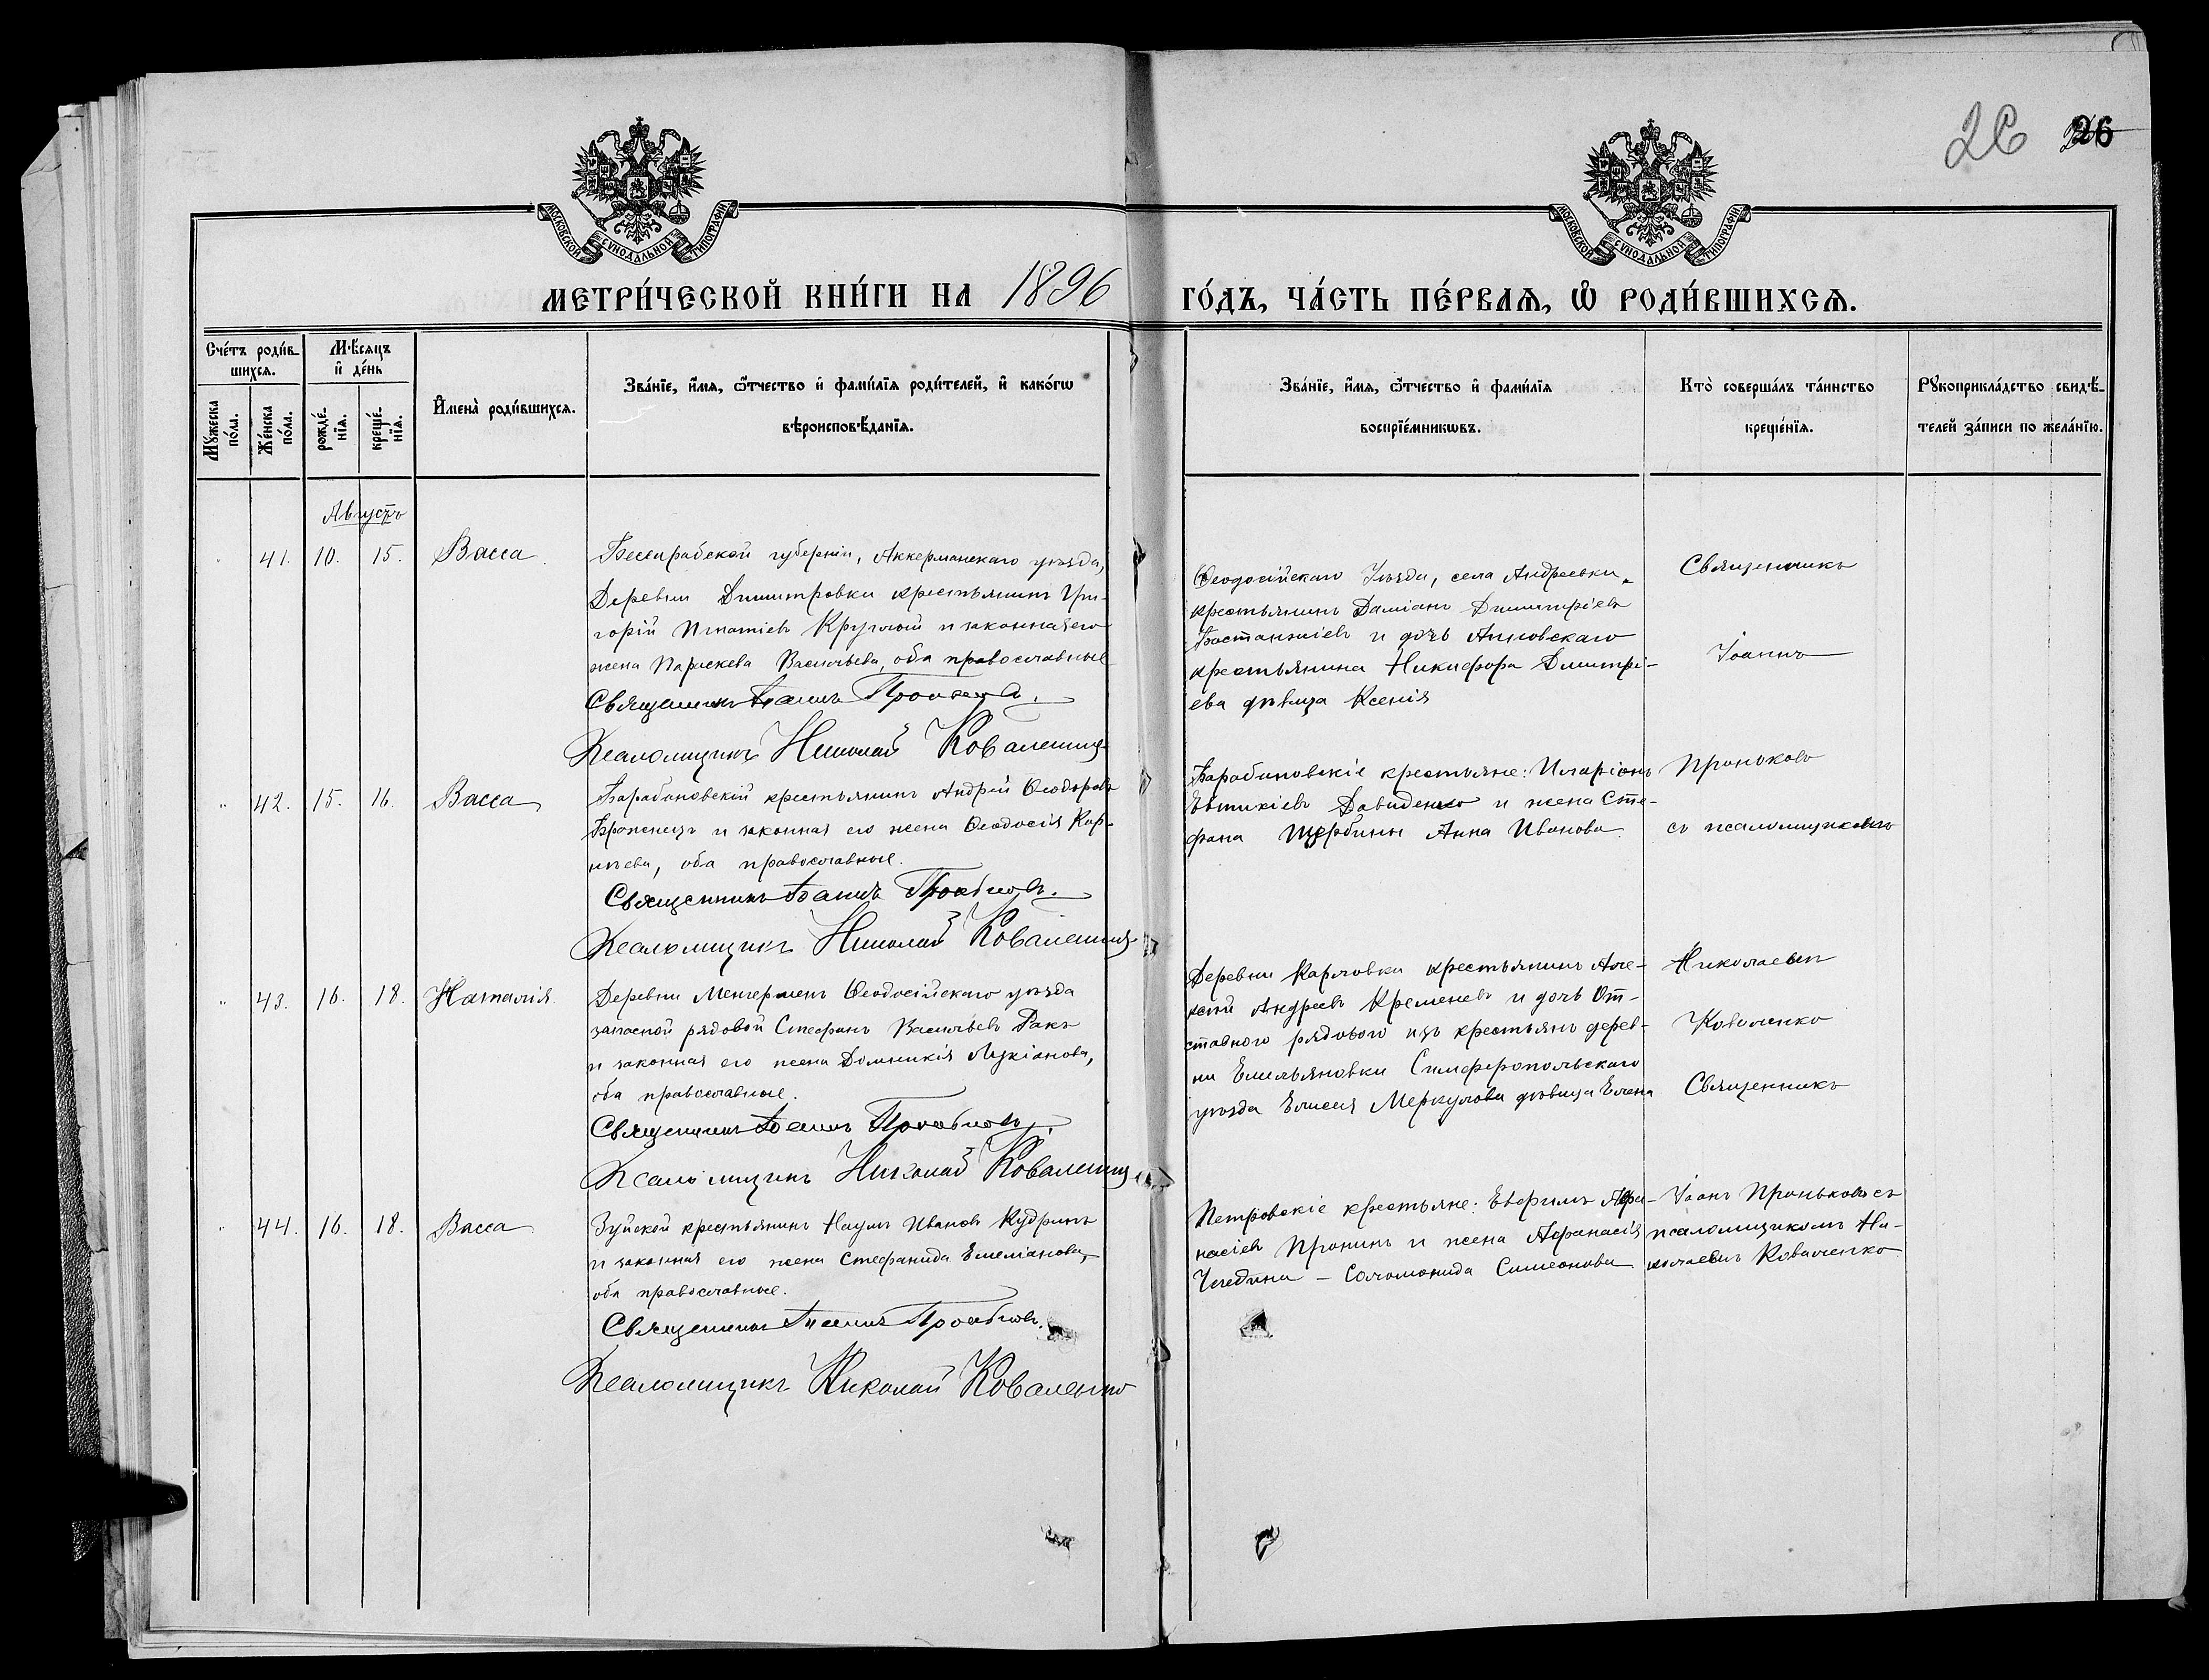 26 26
МОСКОВСКОЙ СѴНОДАЛЬНОЙ ТИПОГРАФІИ
МОСКОВСКОЙ СѴНОДАЛЬНОЙ ТИПОГРАФІИ
МЕТРИ́ЧЕСКОЙ КНИ́ГИ НА 1896 ГО́ДЪ, ЧА́СТЬ ПЕ́РВАѦ, Ѡ҆ РОДИ́ВШИХСѦ.
Сче́тъ роди́в-
шихсѧ.
Мꙋ́жеска по́ла.
Же́нска по́ла.
Мѣ́сѧцъ и҆ де́нь
рожде́-
нїѧ.
креще́-
нїѧ.
И҆мена̀ роди́вшихсѧ.
Зва́нїе, и҆́мѧ, ѻ҆́тчество и҆ фами́лїѧ роди́телей, и҆ како́гѡ
вѣроисповѣ́данїѧ.
Зва́нїе, и҆́мѧ, ѻ҆́тчество и҆ фами́лїѧ
воспрїе́мникѡвъ.
Кто̀ соверша́лъ та́инство
креще́нїѧ.
Рꙋкоприкла́дство свидѣ́-
телей за́писи по жела́нїю.
Августъ
41. 10. 15. Васса
Бессарабской губерніи, Аккерманскаго уѣзда,
Деревни Димитровки крестьянинъ Гри-
горій Игнатіевъ Круглый и законная его
жена Параскева Васильева, оба православные
Священникъ Іоаннъ
Псаломщикъ Николай Коваленко
Ѳеодосійскаго Уѣзда, села Андреевки
крестьянинъ Даміанъ Димитріевъ
и дочь
крестьянина Никифора Димитрі-
ева дѣвица Ксенія
Священникъ
Іоаннъ
42. 15. 16. Васса
Барабановскій крестьянинъ Андрей Ѳеодоровъ
и законная его жена Ѳеодосія Кор-
нѣева, оба православные.
Священникъ Іоаннъ
Псаломщикъ Николай Коваленко
Барабановскіе крестьяне: Иларіонъ
Евтихіевъ Давиденко и жена Сте-
фана Щербины Анна Иванова
Проньковъ
съ псаломщикомъ
43. 16. 18. Наталія
Деревни Ѳеодосійскаго уѣзда
запасной рядовой Стефанъ Васильевъ Ракъ
и законная его жена Домникія Лукіанова,
оба православные.
Священникъ Іоаннъ
Псаломщикъ Николай Коваленко
Деревни Карловки крестьянинъ Але-
ксій Андреевъ Кременевъ и дочь От-
ставного рядового изъ крестьянъ дерев-
ни Емельяновки Симферопольскаго
уѣзда Елисея Меркулова дѣвица Елена
Николаемъ
Коваленко
Священникъ
44. 16. 18. Васса
Зуйскій крестьянинъ Наумъ Ивановъ Кудринъ
и законная его жена Стефанида Емеліанова,
оба православные.
Священникъ Іоаннъ
Псаломщикъ Николай Коваленко
Петровскіе крестьяне: Евфимъ Афа-
насіевъ Пронинъ и жена Афанасія
Соломонида Симеонова
Іоанъ Проньковъ съ
псаломщикомъ Ни-
колаемъ Коваленко